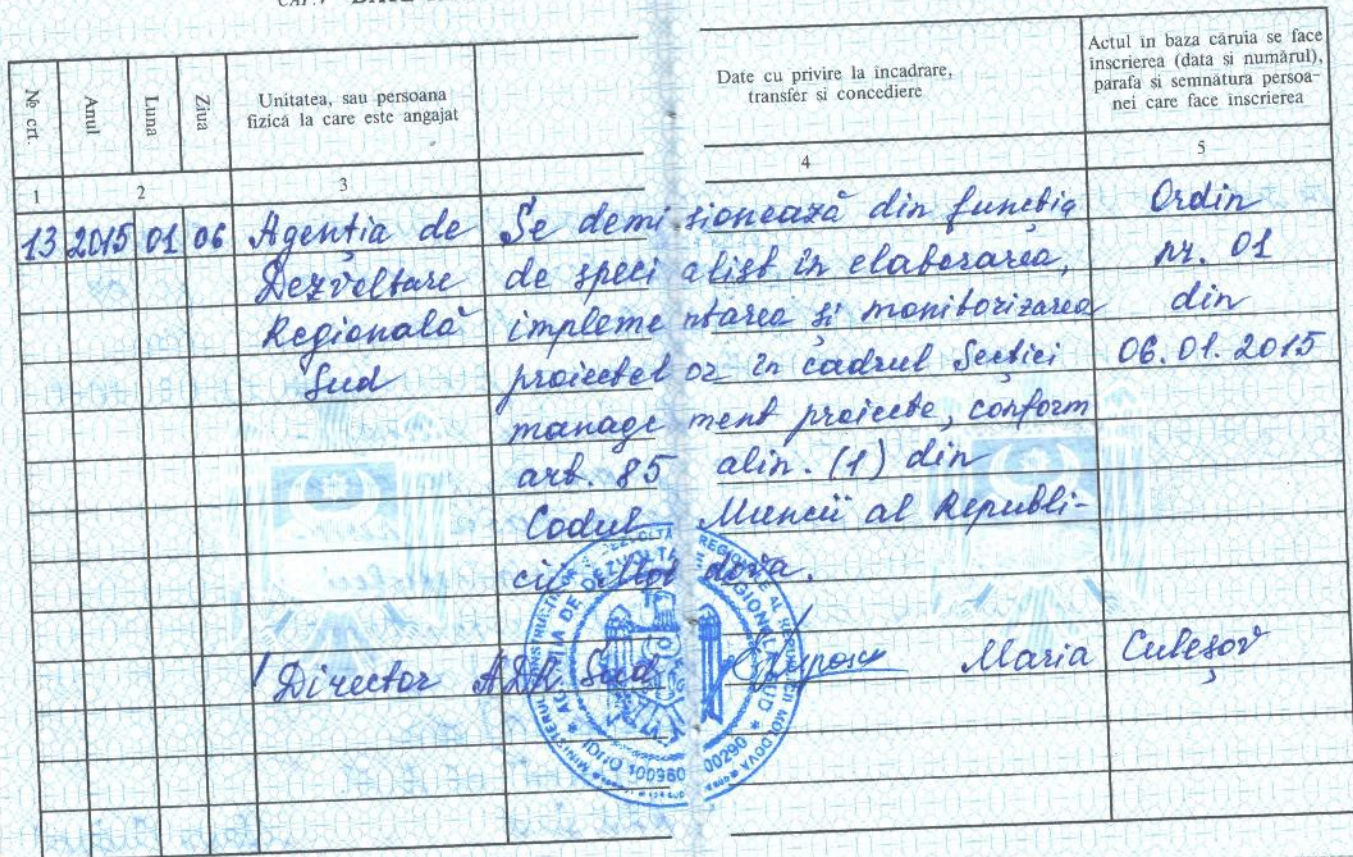 Nº crt.
Anul
Luna
Ziua
Unitatea, sau persoana
fizică la care este angajat
Date cu privire la încadrare,
transfer si concediere
Actul in baza căruia se face
inscrierea (data si numărul),
parafa si semnătura persoa-
nei care face inscrierea
1 2 3 4 5
13 2015 01 06 Agenția de Se demisionează din funcția Ordin
Dezvoltare de specialist în elaborarea, nr. 01
Regională implementarea și monitorizarea din
Sud proiectelor în cadrul Secției 06.01.2015
management proiecte, conform
art. 85 alin. (1) din
Codul Muncii al Republi-
cii Moldova.
Director ADR Sud Maria Culeșov